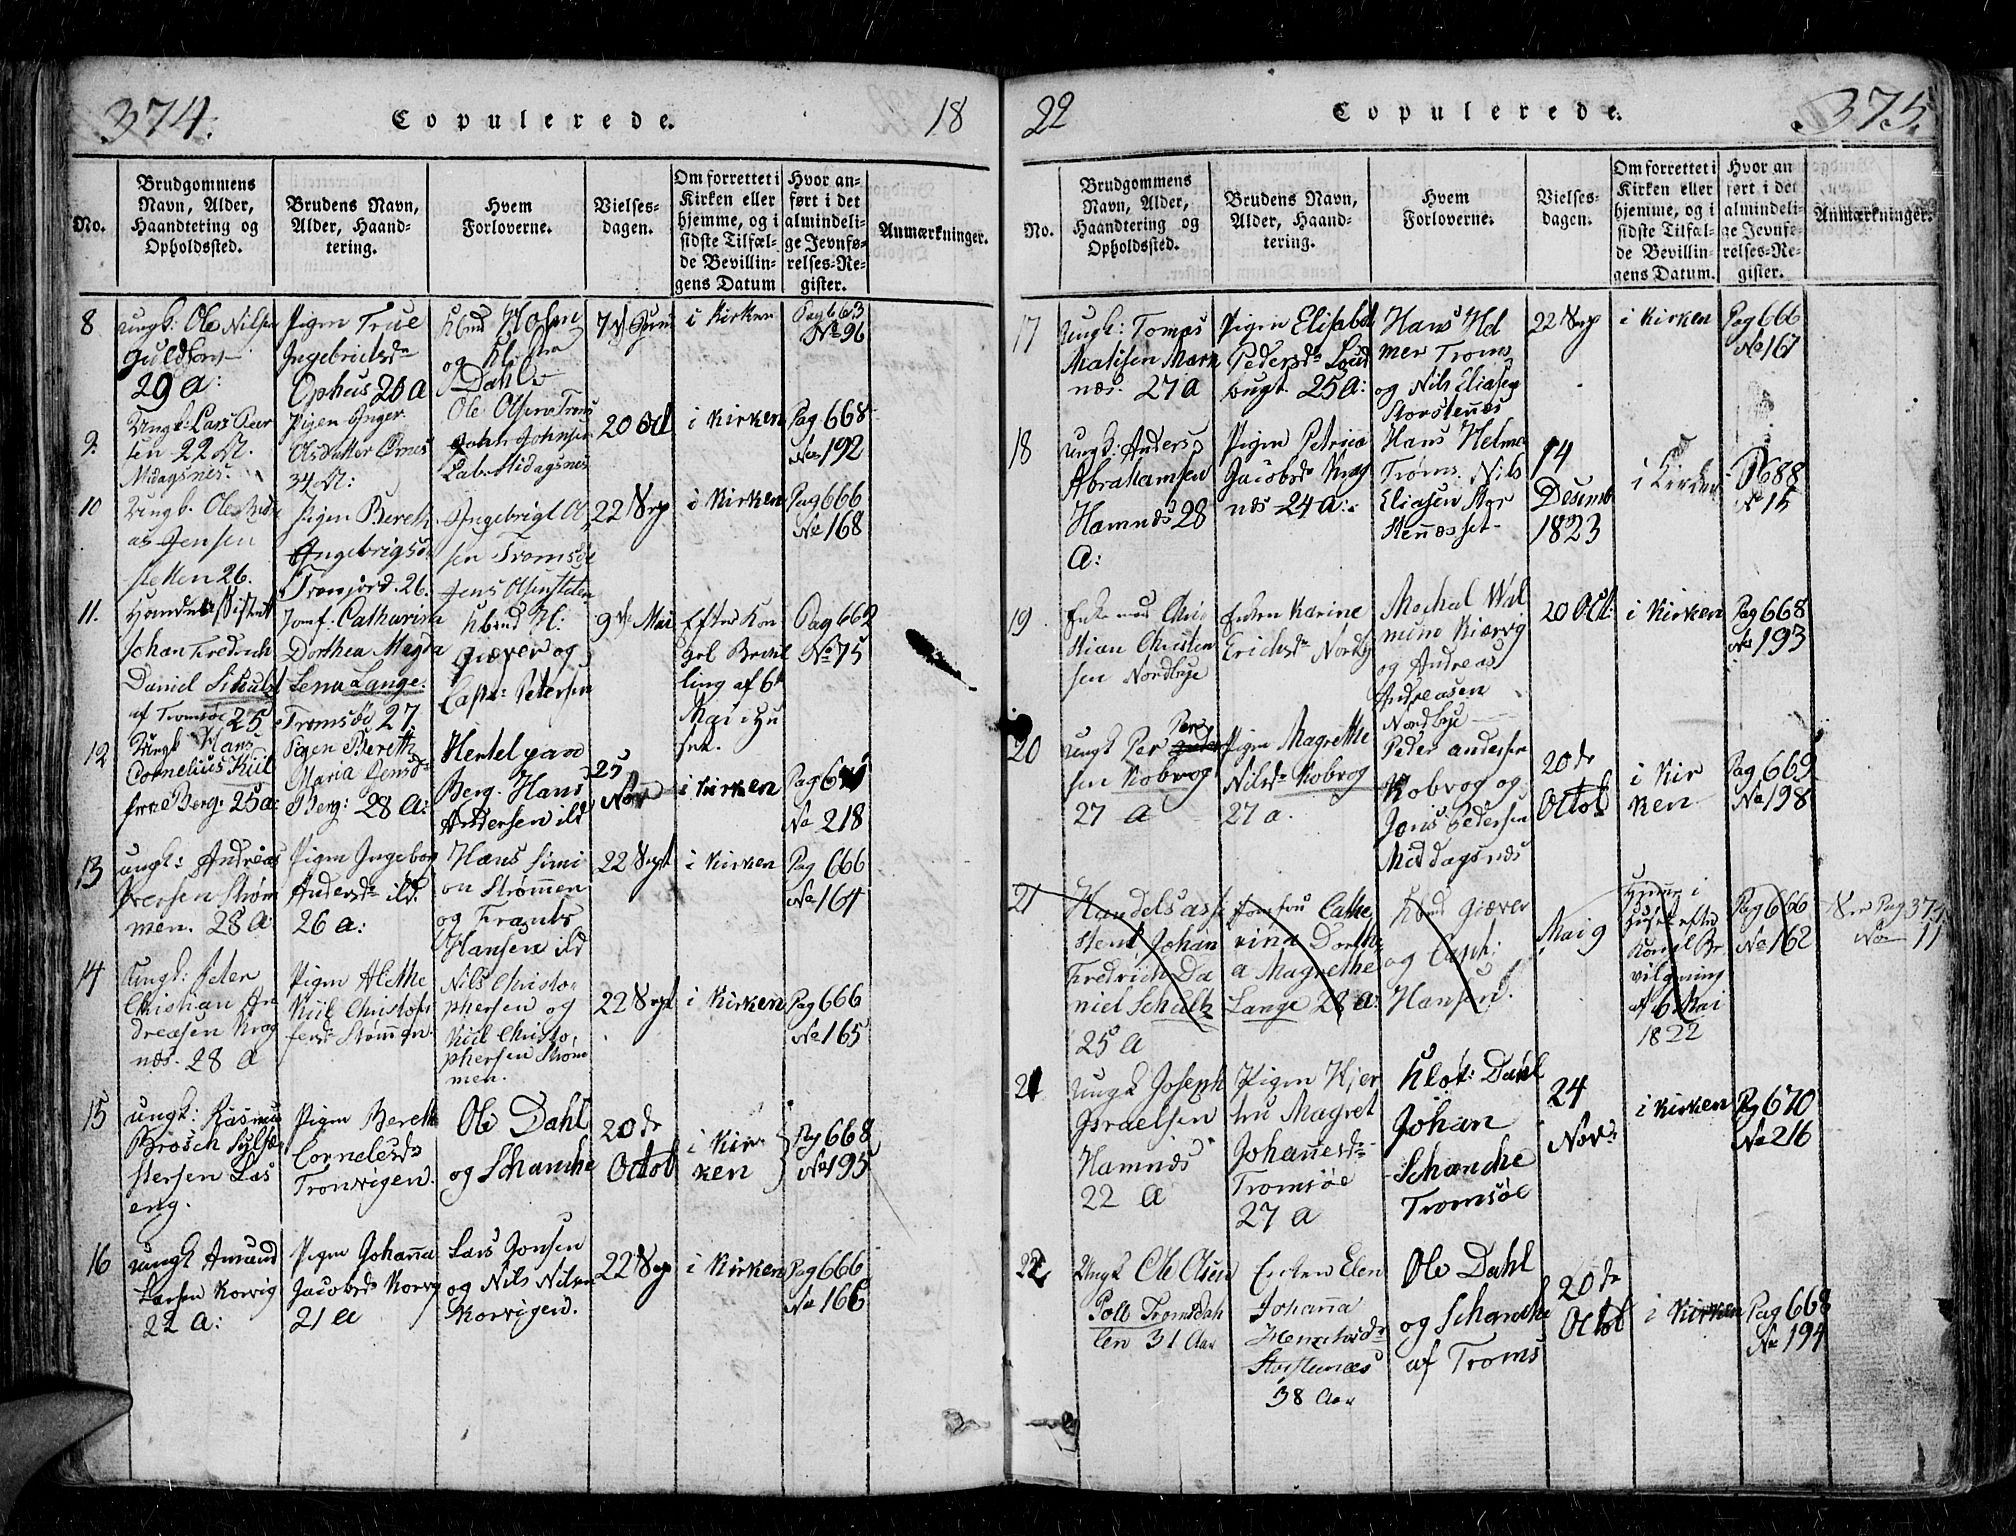 374.
Copulerede.
18
No.
Brudgommens
Navn, Alder,
Haandtering og
Opholdssted.
Brudens Navn,
Alder, Haand-
tering.
Hvem
Forloverne.
Vielses-
dagen.
Om forrettet i
Kirken eller
hjemme, og i
sidste Tilfæl-
de Bevillin-
gens Datum
Hvor an-
ført i det
almindeli-
ge Jevnfø-
relses-Re-
gister.
Anmærkninger.
8
Ungk: Ole Nilsen
29 a:
Pigen True
Ingebrictsdr
Opheus 20 a
og
Dahl
i Kirken
Pag 663
No 96
9.
Ungk: Lars Peer
sen 22 A.
Midagsnes.
Pigen Inger
Olsdatter
34 A:
Ole Olsen Troms
John Johnsen
Midagsnes
20 Oct
i Kirken
Pag 668
No 192
10
Ungk. Ole
as Jensen
stetten 26.
Pigen Bereth
Ingebrigsdr
Tromjord. 26.
Ingebrigt Ol
sen Tromsøe
Jens Olsen
22 Sep
i Kirken
Pag 666
No 168
11.
Handelsassistent
Johan Fredrich
Daniel Schultz
af Tromsøe 25
Jomf. Catharina
Dorthea Magda
Lena Lange.
Tromsöe 27
Kbmd M:
Giæver og
Capt: Petersen
9de Mai
Efter Kon
gel Bevil
ling af 6t
Mai i Hu
set.
Pag 662
No 75
12
Ungk Hans
Cornelius Kiil
Berg. 25 a:
Pigen Bereth
Maria Jensdr
Berg: 28 a:
Hertel paa
Berg. Hans
Andersen ild
25
Nov
i Kirken
No 218
13
Ungk: Andreas
Iversen Strøm
men. 28 a
Pigen Ingebog
Andersdr ild.
26 a:
Hans Simi
on Strømmen
og Frants
Hansen ild
22 Sept
i Kirken
Pag 666
No 164
14
Ungk: Peter
Christian An
dreasen Krog
næs. 28 a
Pigen Alethe
Kiil Christof
fersdr Strømmen
Nils Christo
phersen og
Kiil Christo
phersen Strøm
men.
22 Sept
i Kirken
Pag 666
No 165
15
Ungk: Rasmus
Brosch
stersen Las
eng.
Pigen Bereth
Cornelesdr
Tronvigen.
Ole Dahl
og Schanche
20de
Octob
i Kir
ken
Pg 668
No 195
16
Ungk Amund
Larsen Korvig
22 a:
Pigen Johanna
Jacobsdr Korvg
21 a
Lars Jonsen
og Nils Nilsen
Korvigen.
22 Sep
i Kirken
Pag 666
No 166
22
Copulerede.
375.
No.
Brudgommens
Navn, Alder,
Haandtering og
Opholdssted.
Brudens Navn,
Alder, Haand-
tering.
Hvem
Forloverne.
Vielses-
dagen.
Om forrettet i
Kirken eller
hjemme, og i
sidste Tilfæl-
de Bevillin-
gens Datum.
Hvor an-
ført i det
almindeli-
ge Jevnfø-
relses-Re-
gister.
Anmærkninger.
17
Ungk: Tomas
Matisen Mæn
næs. 27 a
Pigen Elisabet
Pedersdr
bugt. 25 a:
Hans Hel
mer Troms
og Nils Eliasen
Storstennes
22 Sep
i Kirken
Pag 666
No 167
18
Ungk: Anders
Abrahamsen
Hamnæs 28
a:
Pigen Petrica
Jacobsdr Krog
næs 24 a:
Hans Helme
Troms. Nils
Eliasen Stor
stennæsset
14
Desemb
1823
i Kirken
P 688
No 15
19
Enkemand Chri
stian Christen
sen Nordbye
Enken Karine
Erichsdr Nordby
Mechal Wal
mine Kiærvg
og Andreas
Andreasen
Nordbye
20 Oct:
i Kirken
Pag 668
No 193
20
Ungk Per Per
sen Kobvog
27 a
Pigen Magrethe
Nilsdr Kobvog
27 a.
Peder Andersen
Kobvog og
Jonis Pedersen
Middagsnæs
20de
Octob
i Kir
ken
Pag 669
No 198
21
Handelsassi
stent Johan
Fredrich Da
niel Schultz
25 a
Jomfru Cathe
rina Dorthe
a Magrethe
Lange 28 a:
Kbmd Giæver
og Capt:
Hansen.
Mai 9
Hiemme i
Huset efter
Kongl Be
vilgning
af 6 Mai
1822
Pag 666
No 162
See Pag 374.
No 11
21
Ungk Joseph
Israelsen
Hamnæs
22 a
Pigen Kjer
tru Magret
Johannesdr
Tromsöe
27 a
Klok: Dahl
Johan
Schanche
Tromsöe
24
Nov:
i Kirken
Pg 670
No 216
22
Ungk Ole Olsen
Poll Tromsdah
len 31 Aar
Enken Elen
Johanna
Henrichsdr
Storstennæs
38 Aar
Ole Dahl
og Schanche
af Troms
20de
Octob
i Kirken
Pag 668
No 194